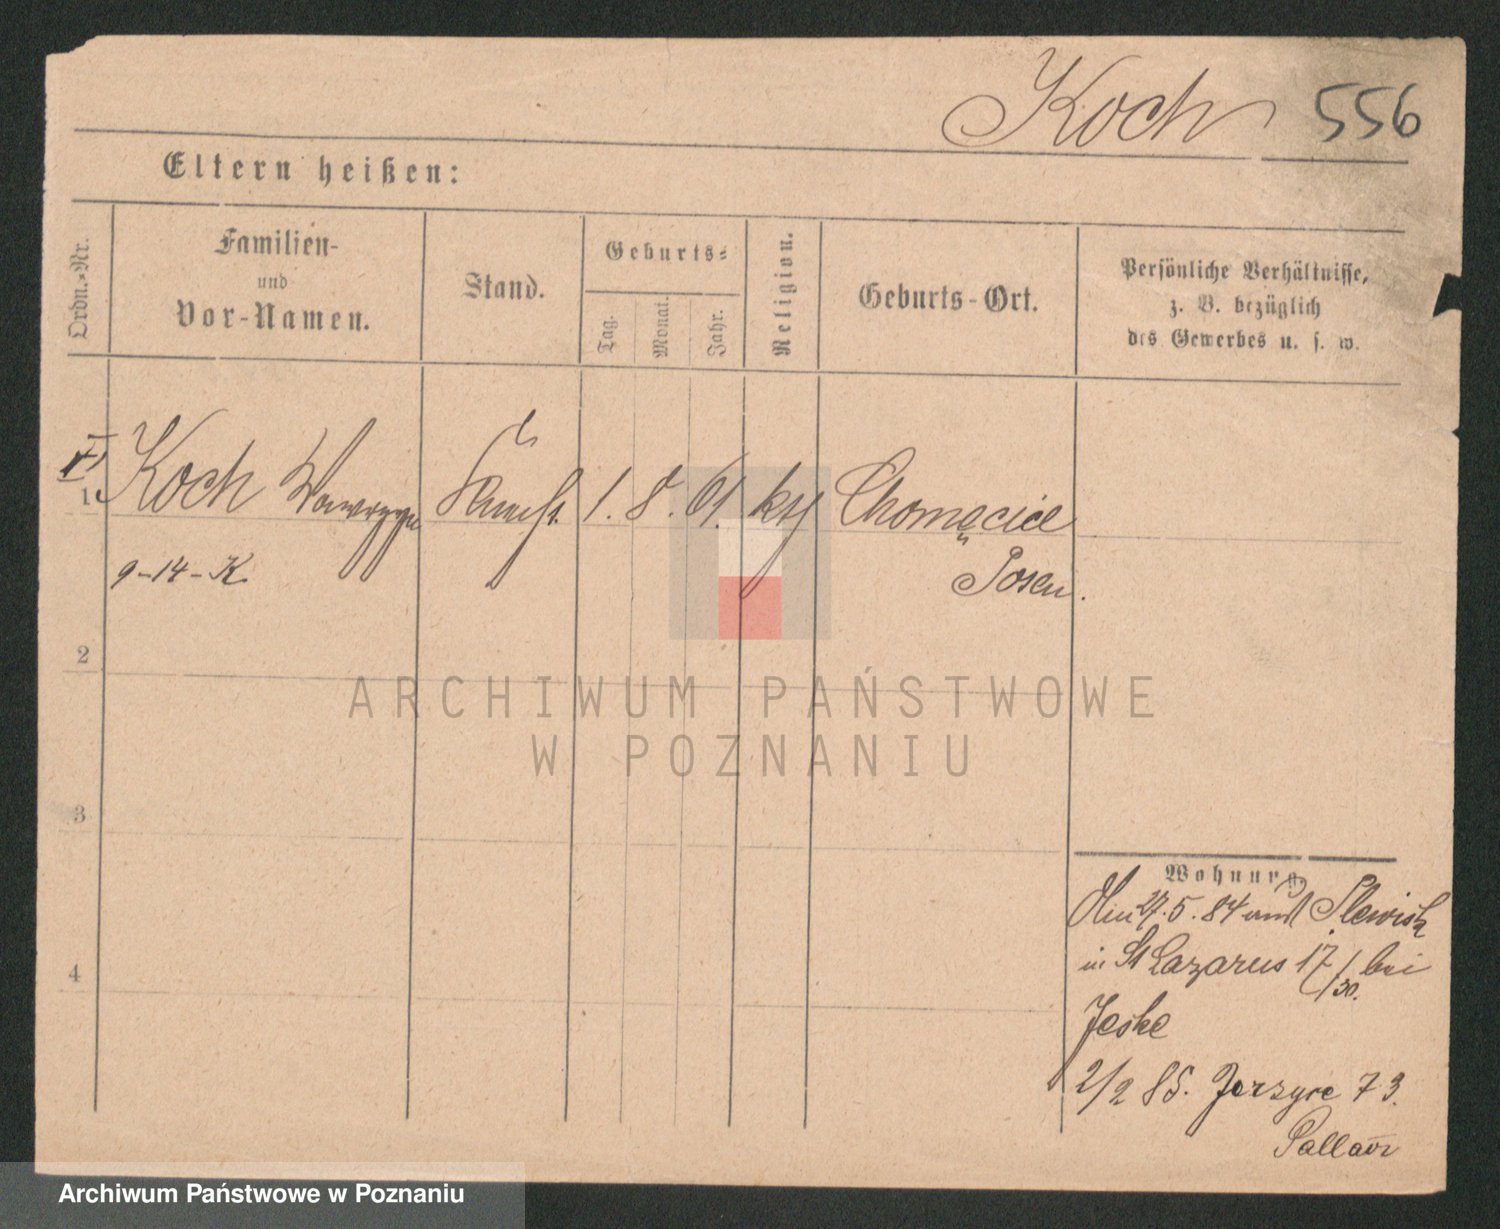 Koch 556
Eltern heißen:
Ordn.-Nr.
Familien-
und
Vor-Namen.
Stand.
Geburts-
Tag.
Monat.
Jahr.
Religion.
Geburts-Ort.
Persönliche Verhältnisse,
z. B. bezüglich
des Gewerbes u. s. w.
1 Koch Wawrzyn Knecht 1. 8. 61. kth Chomęcice
9-14-K. Posen.
2
3
4
Wohnung.
27.5.84 Plewisk
in St Lazarus 17/30. bei
Jeske
2/2 85. Jerzyce 73.
ARCHIWUM PAŃSTWOWE
W POZNANIU
Archiwum Państwowe w Poznaniu